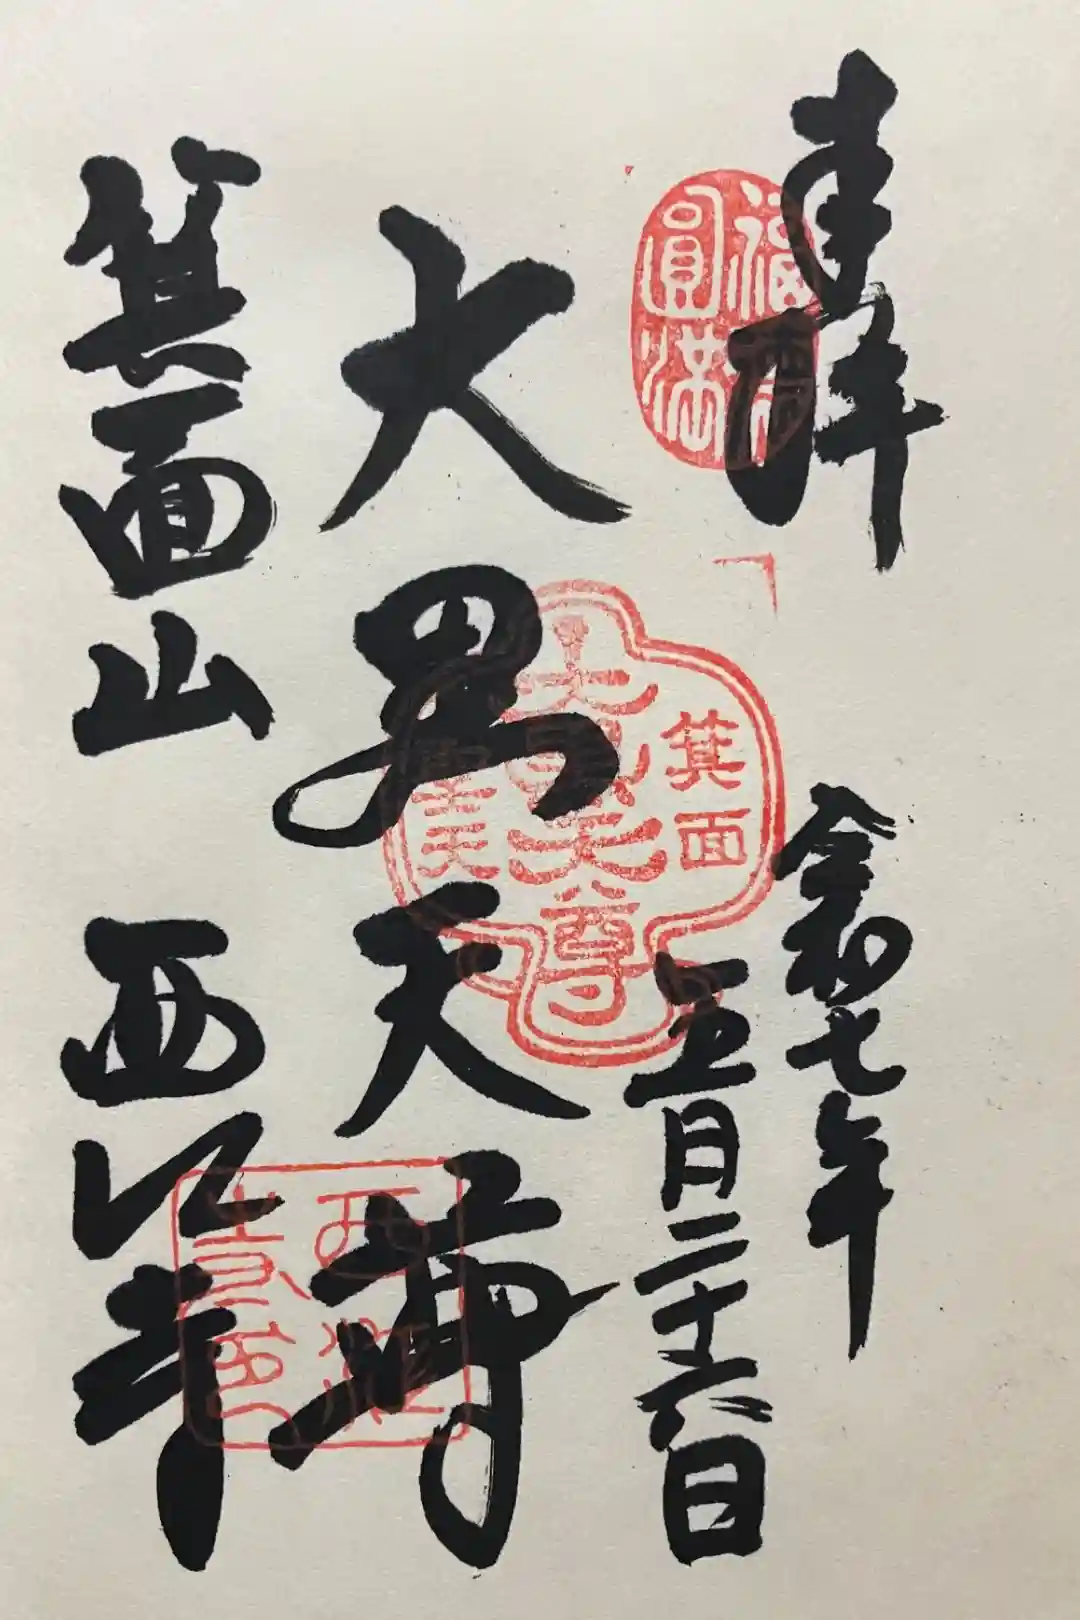 奉拝
令和七年
五月二十六日
大黒天尊
箕面山 西江寺
福壽圓満
箕面
大黒天尊